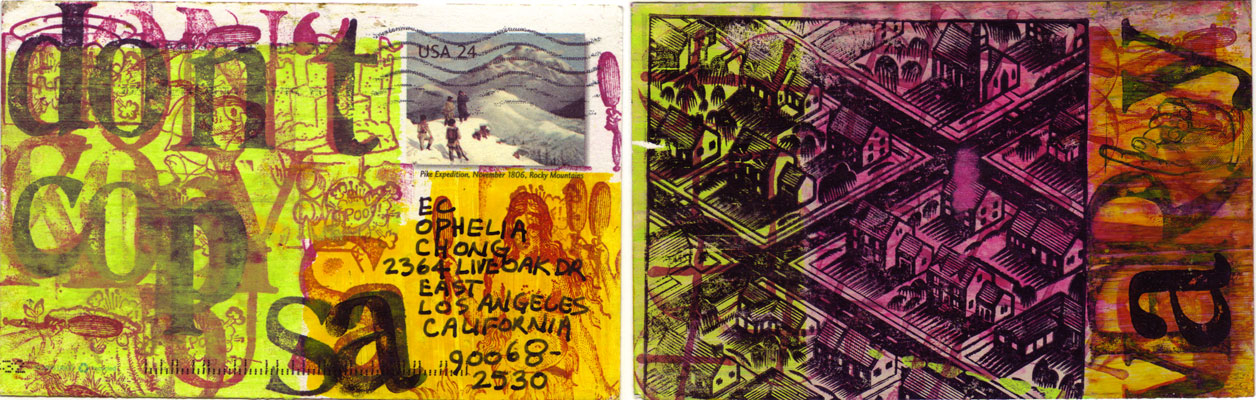 don't
USA 24
Pike Expedition, November 1806, Rocky Mountains
COPY
cop
sa
EG
OPHELIA
CHONG
2364 LIVEOAK DR
EAST
LOS ANGELES
CALIFORNIA
90068-
2530